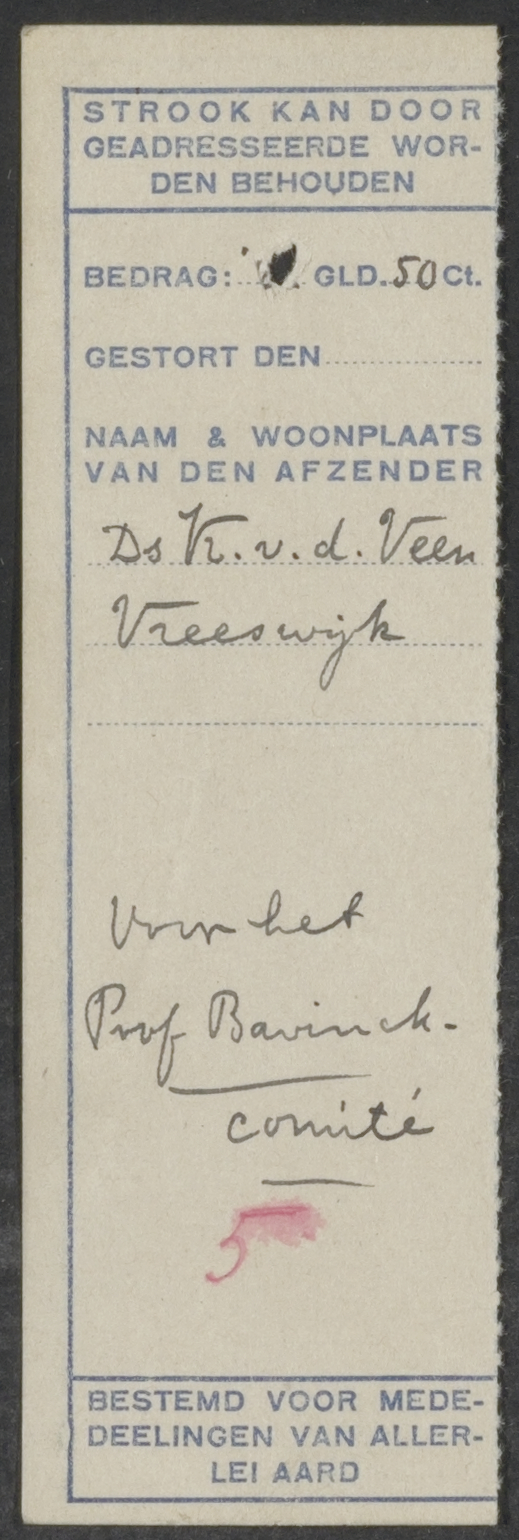 STROOK KAN DOOR
GEADRESSEERDE WOR-
DEN BEHOUDEN
BEDRAG: GLD. 50 Ct.
GESTORT DEN
NAAM & WOONPLAATS
VAN DEN AFZENDER
Ds K. v. d. Veen
Vreeswijk
Voor het
Prof Bavinck-
comité
5
BESTEMD VOOR MEDE-
DEELINGEN VAN ALLER-
LEI AARD